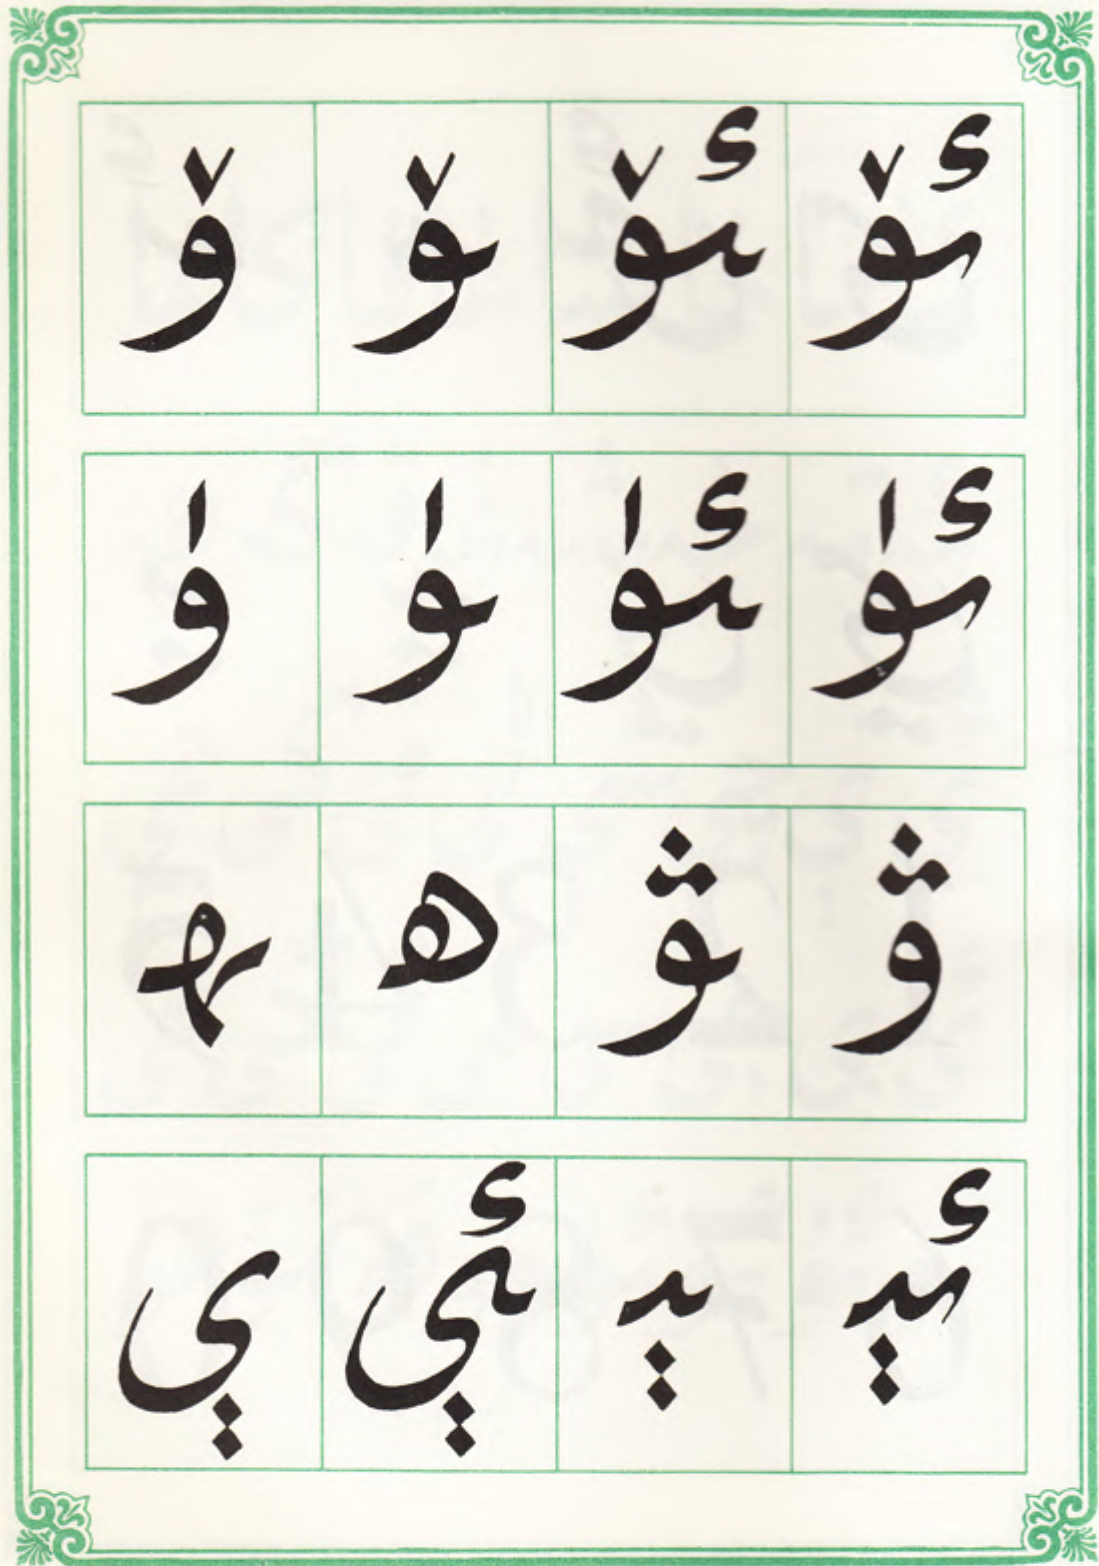 ئۆ ـئۆ ـۆ ۆ
ئۈ ـئۈ ـۈ ۈ
ۋ ـۋ ھ ـھ
ئېـ ـېـ ـئې ې